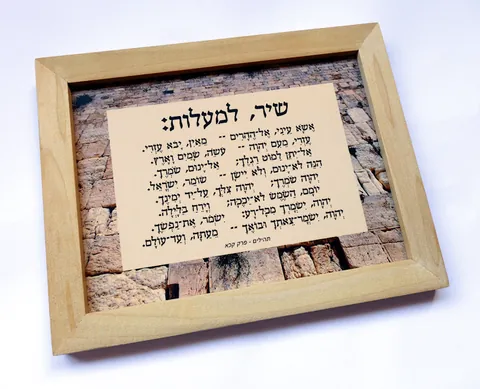 שיר, למעלות:
אֶשָּׂא עֵינַי, אֶל-הֶהָרִים -- מֵאַיִן, יָבֹא עֶזְרִי.
עֶזְרִי, מֵעִם יְהוָה -- עֹשֵׂה, שָׁמַיִם וָאָרֶץ.
אַל-יִתֵּן לַמּוֹט רַגְלֶךָ; אַל-יָנוּם, שֹׁמְרֶךָ.
הִנֵּה לֹא-יָנוּם, וְלֹא יִישָׁן -- שׁוֹמֵר, יִשְׂרָאֵל.
יְהוָה שֹׁמְרֶךָ; יְהוָה צִלְּךָ, עַל-יַד יְמִינֶךָ.
יוֹמָם, הַשֶּׁמֶשׁ לֹא-יַכֶּכָּה; וְיָרֵחַ בַּלָּיְלָה.
יְהוָה, יִשְׁמָרְךָ מִכָּל-רָע: יִשְׁמֹר, אֶת-נַפְשֶׁךָ.
יְהוָה, יִשְׁמָר-צֵאתְךָ וּבוֹאֶךָ -- מֵעַתָּה, וְעַד-עוֹלָם.
תהילים - פרק קכא